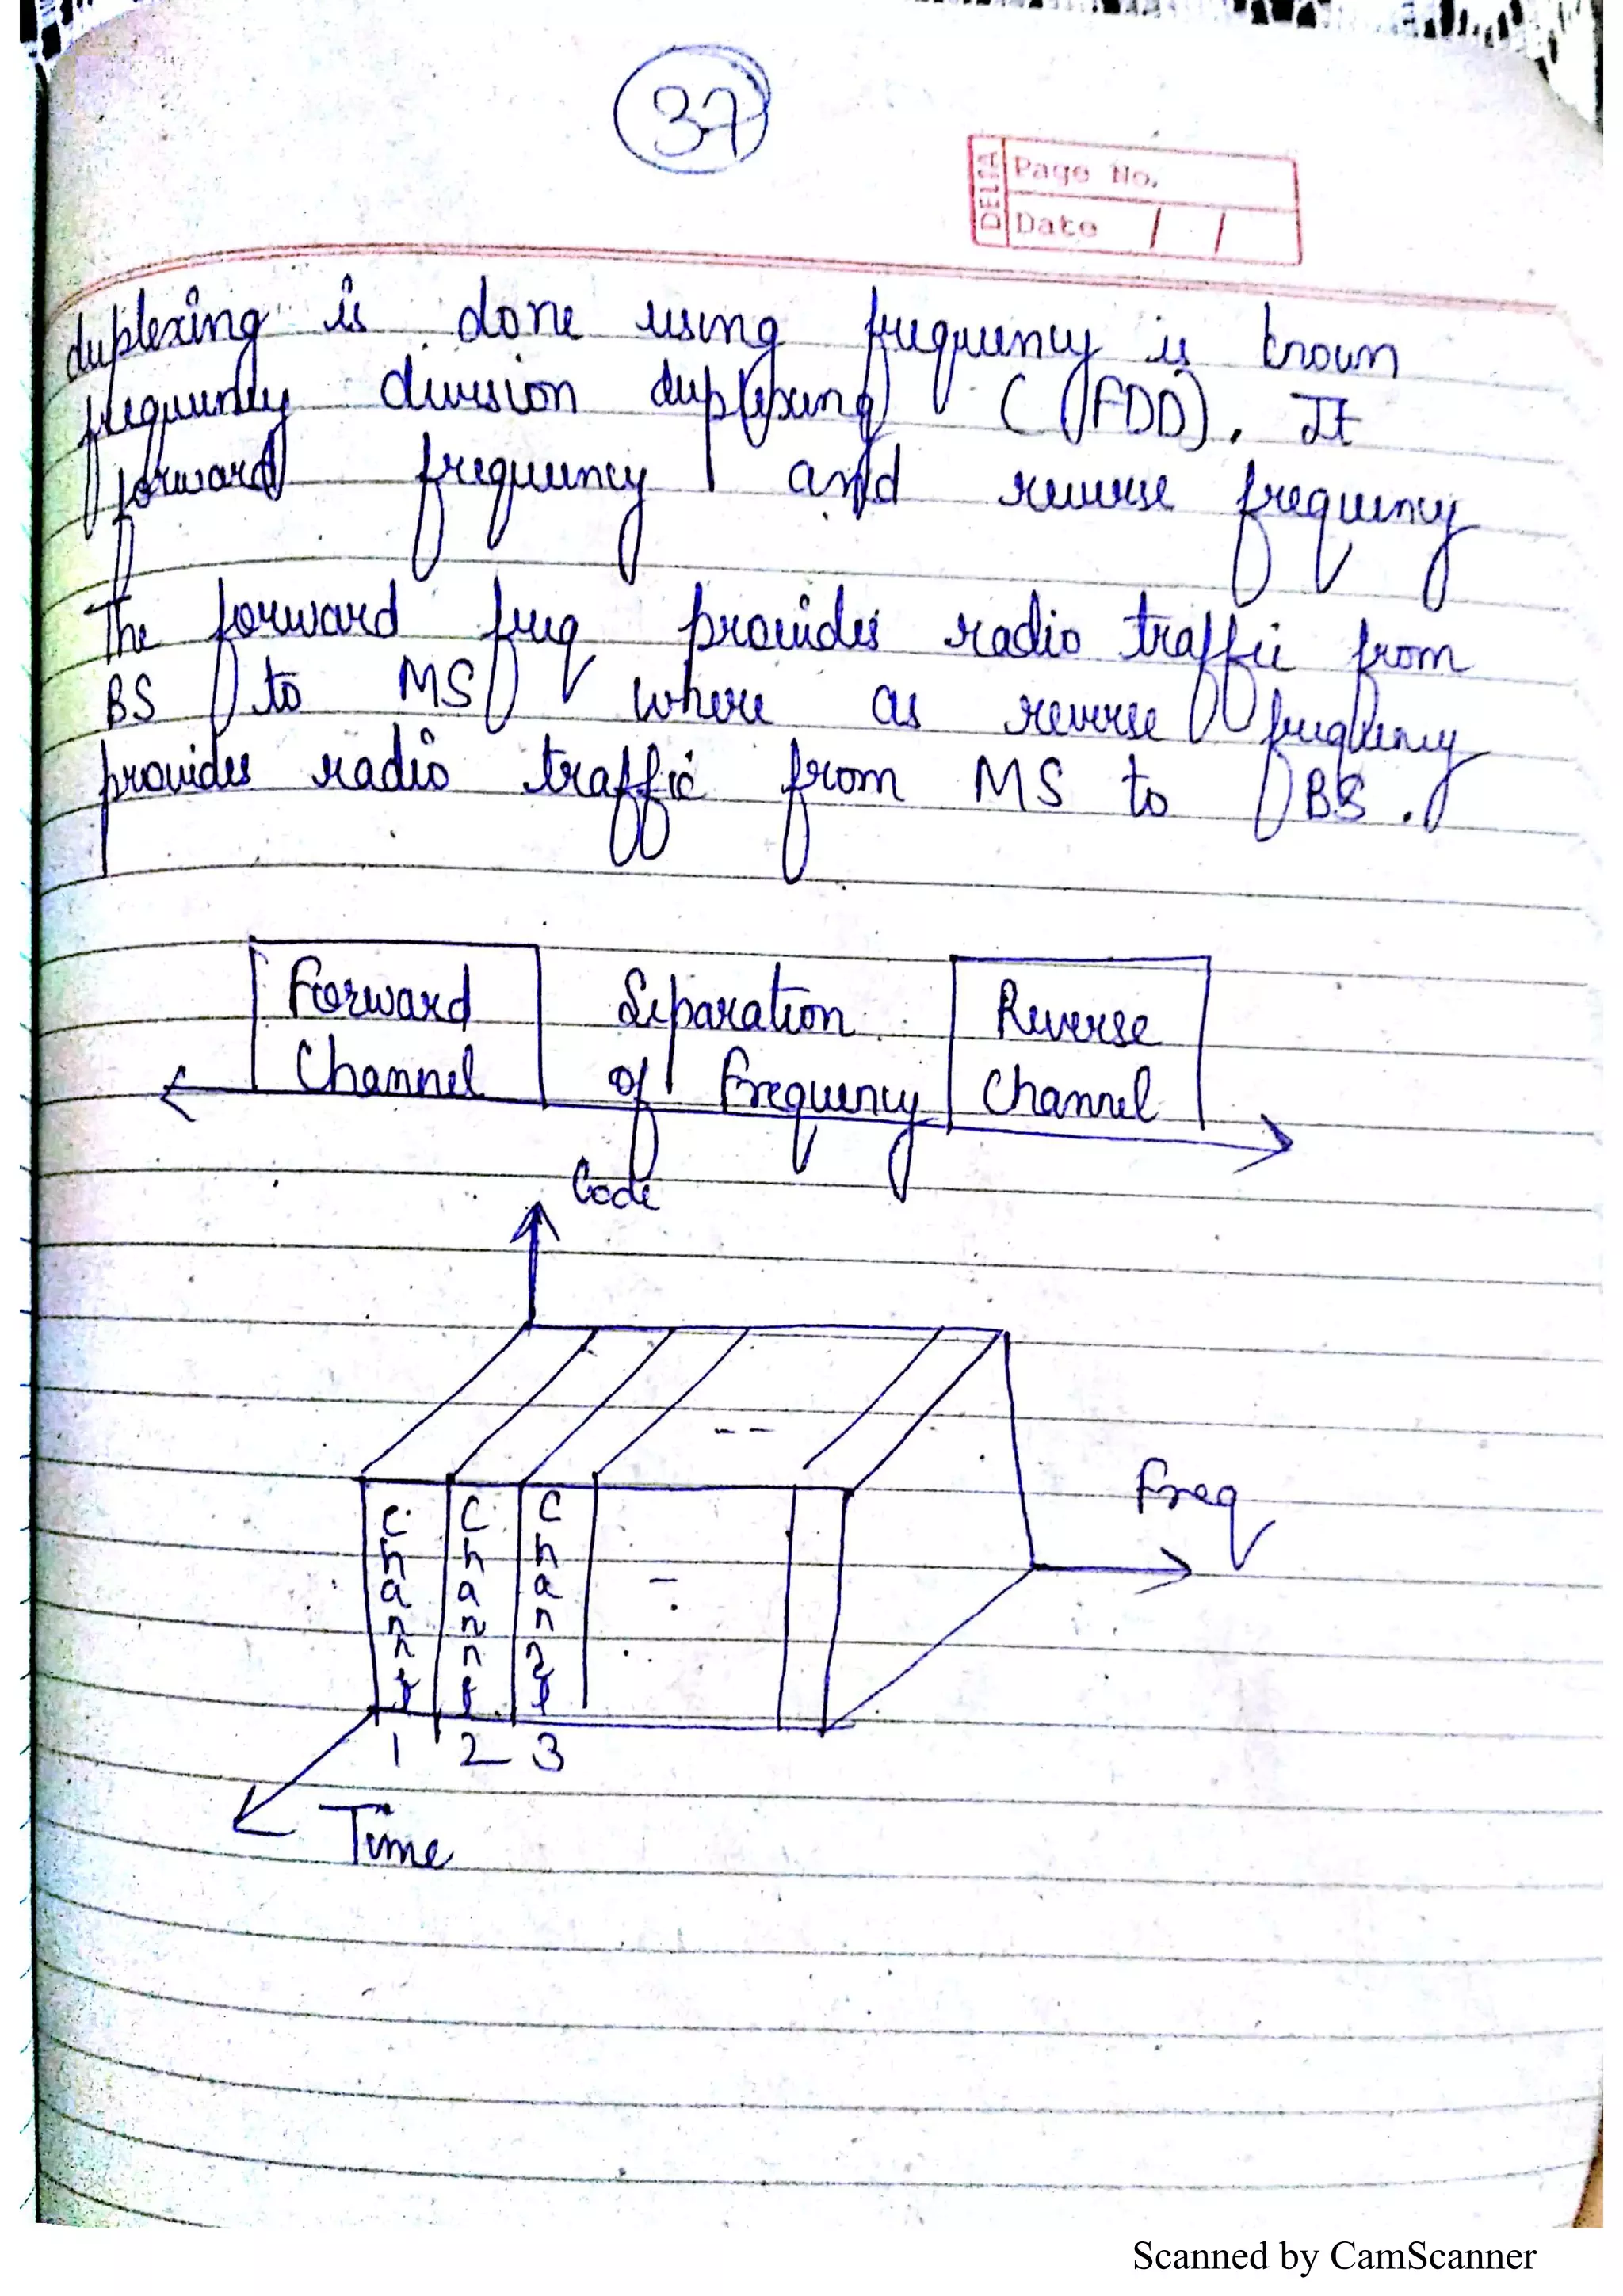 37
DELTA
Page No.
Date / /
duplexing is done using frequency is known
frequency division duplexing (FDD). It
forward frequency and reverse frequency
The forward freq provides radio traffic from
BS to MS where as reverse frequency
provides radio traffic from MS to BS.
Forward Channel
Separation of Frequency
Reverse Channel
Code
Freq
Channel 1
Channel 2
Channel 3
Time
Scanned by CamScanner